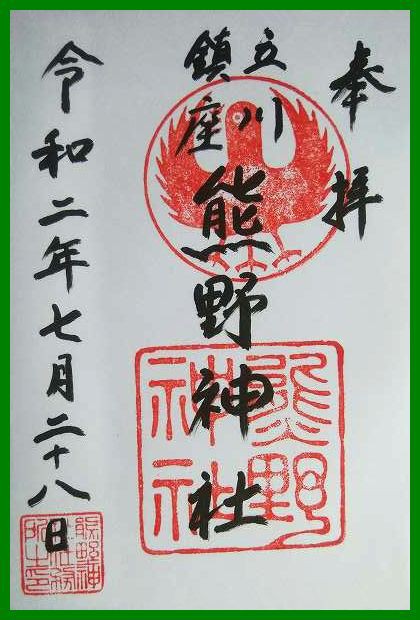 奉拝
立川
鎮座
熊野神社
熊野
神社
令和二年七月二十八日
熊野神
社務
所之印